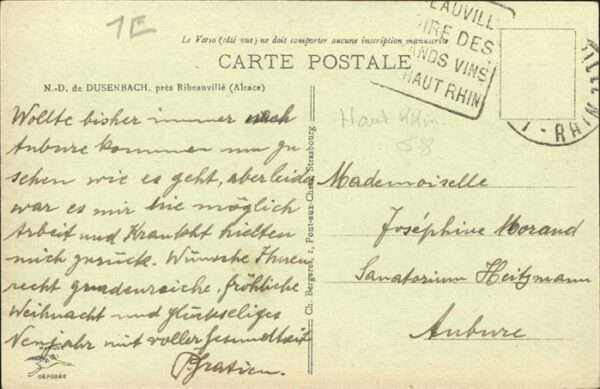 1E
Le Verso (côté vue) ne doit comporter aucune inscription manuscrite
CARTE POSTALE
RIBEAUVILL
FOIRE DES
GRANDS VINS
HAUT RHIN
N.-D. de DUSENBACH, près Ribeauvillé (Alsace)
Wollte bisher immer nach
Aubure kommen um zu
sehen wie es geht, aber leider
war es mir nie möglich
Arbeit und Krankht hielten
mich zurück. Wünsche Ihnen
recht gnadenreiche, fröhliche
Weihnacht und glückseliges
Neujahr mit voller Gesundheit
P. Gratien.
DÉPOSÉE
Ch. Bergeret, 1, Pont-aux-Chats, Strasbourg
Haut Rhin
68
Mademoiselle
Joséphine Morand
Sanatorium Heitzmann
Aubure